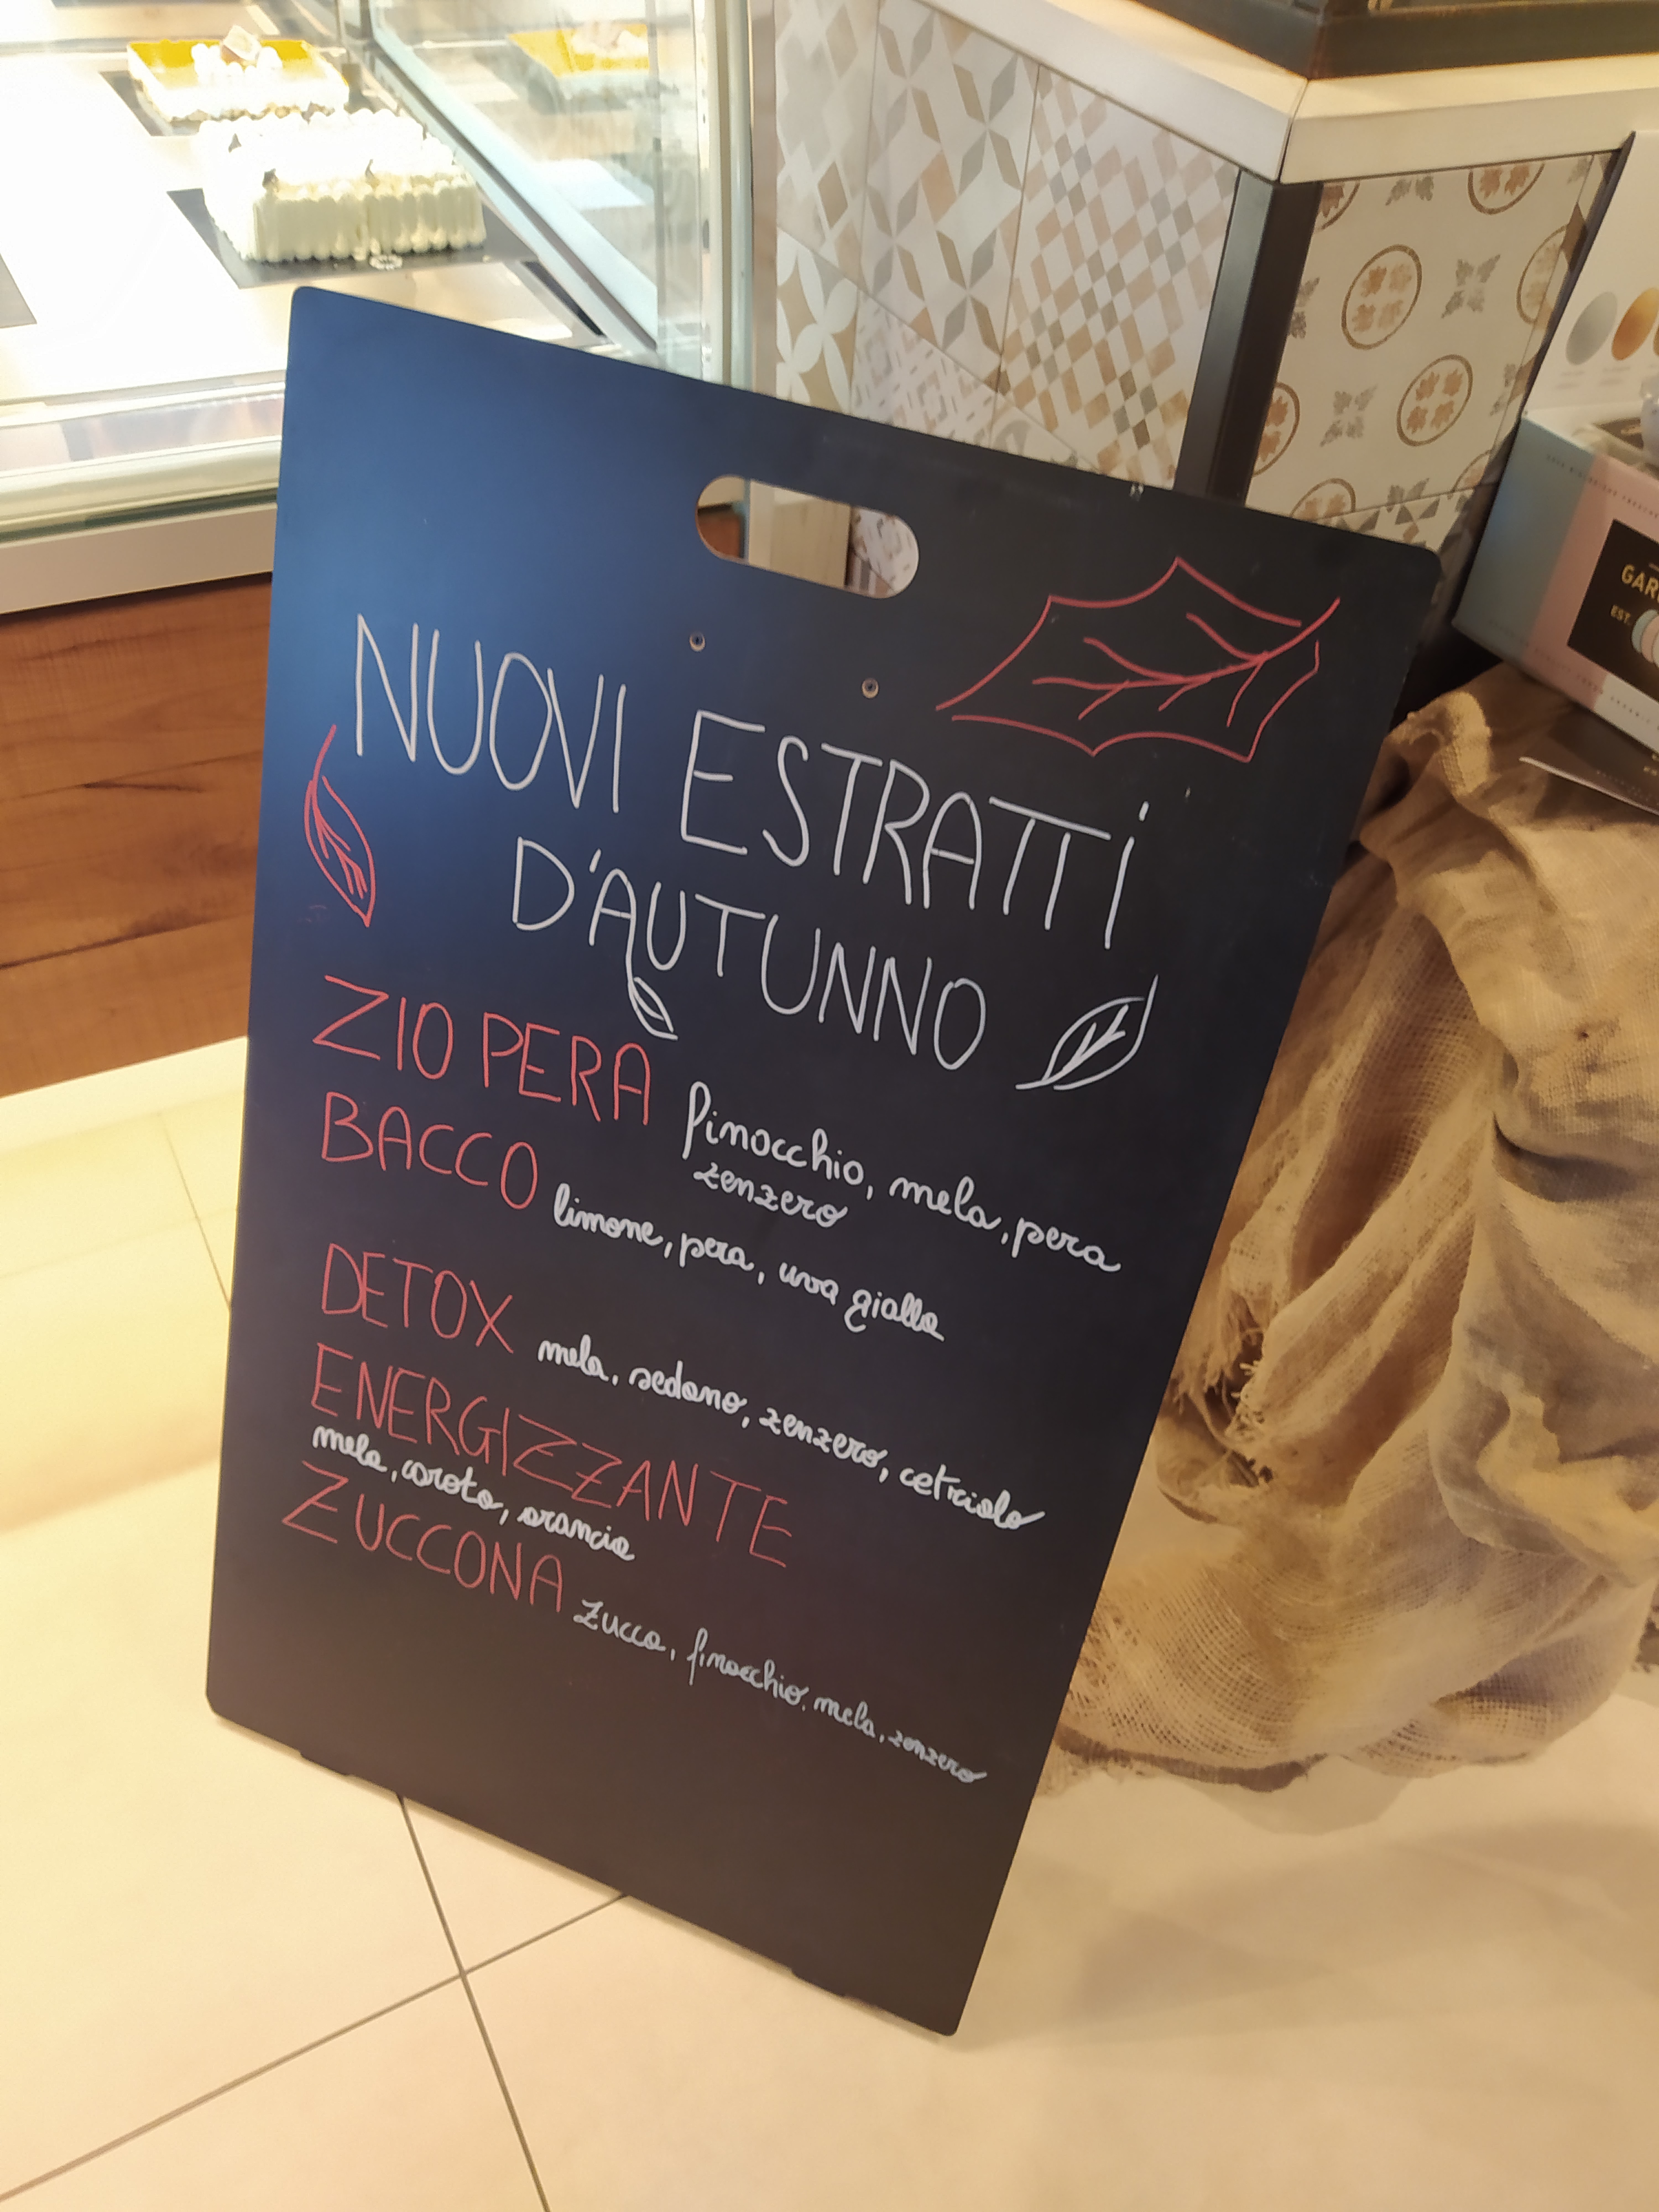 NUOVI ESTRATTI
D'AUTUNNO
ZIO PERA finocchio, mela, pera
zenzero
BACCO limone, pera, uva gialla
DETOX mela, sedano, zenzero, cetriolo
ENERGIZZANTE
mela, carota, arancia
ZUCCONA zucca, finocchio, mela, zenzero
EST.